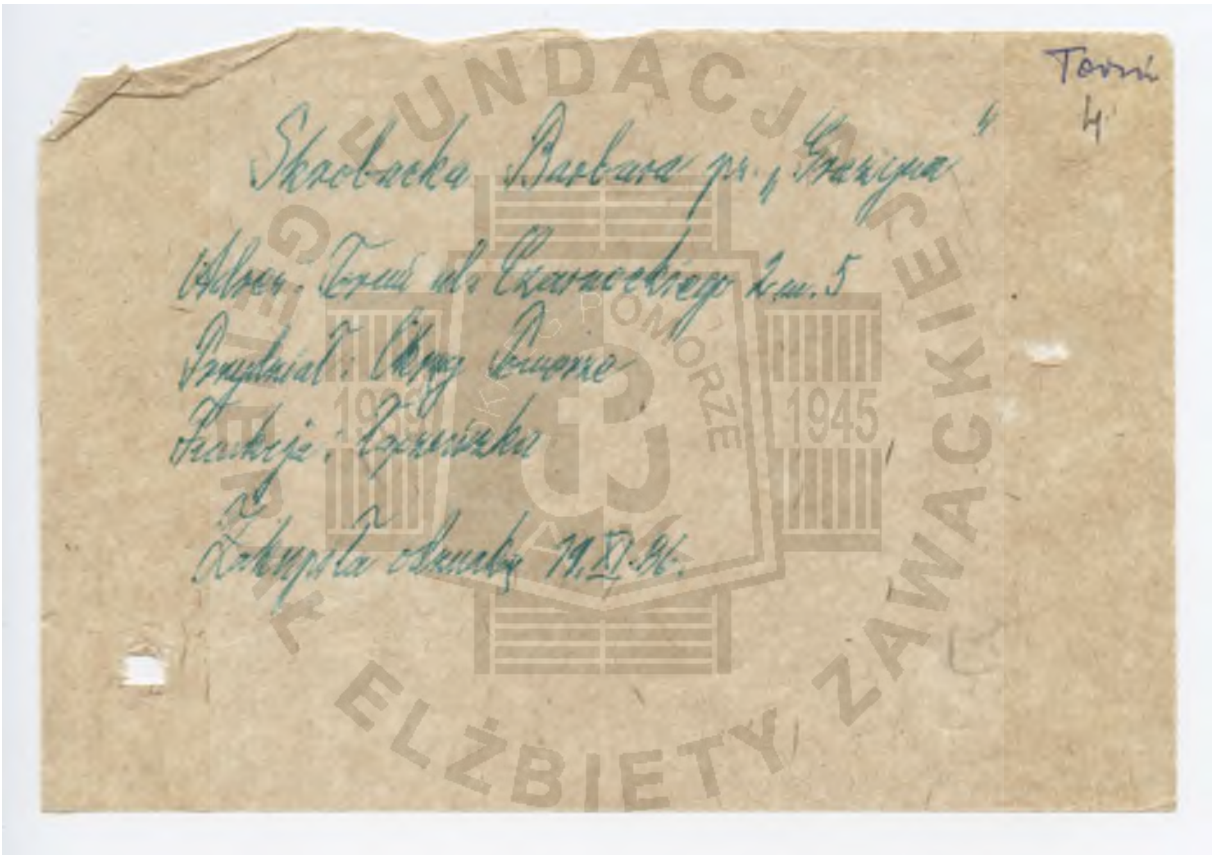 Toruń
4
Skrobacka Barbara ps. „Grażyna"
Adres: Toruń ul. Czarneckiego 2 m. 5
Przydział: Okręg Pomorze
Funkcja: Łączniczka
Zakupiła odznakę 19.XI.96.
FUNDACJA GENERAŁ ELŻBIETY ZAWACKIEJ
1939
1945
POMORZE
AK